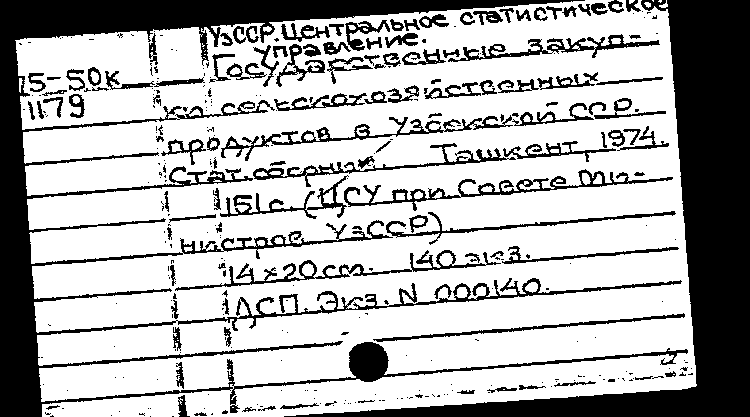 УзССР. Центральное статистическое
управление.
Государственные закуп-
75-50к
1179
ки сельскохозяйственных
продуктов в Узбекской ССР.
Стат. сборник. Ташкент, 1974.
151 с. (ЦСУ при Совете Ми-
нистров УзССР).
14 x 20 см. 140 экз.
ДСП. Экз. N 000140.